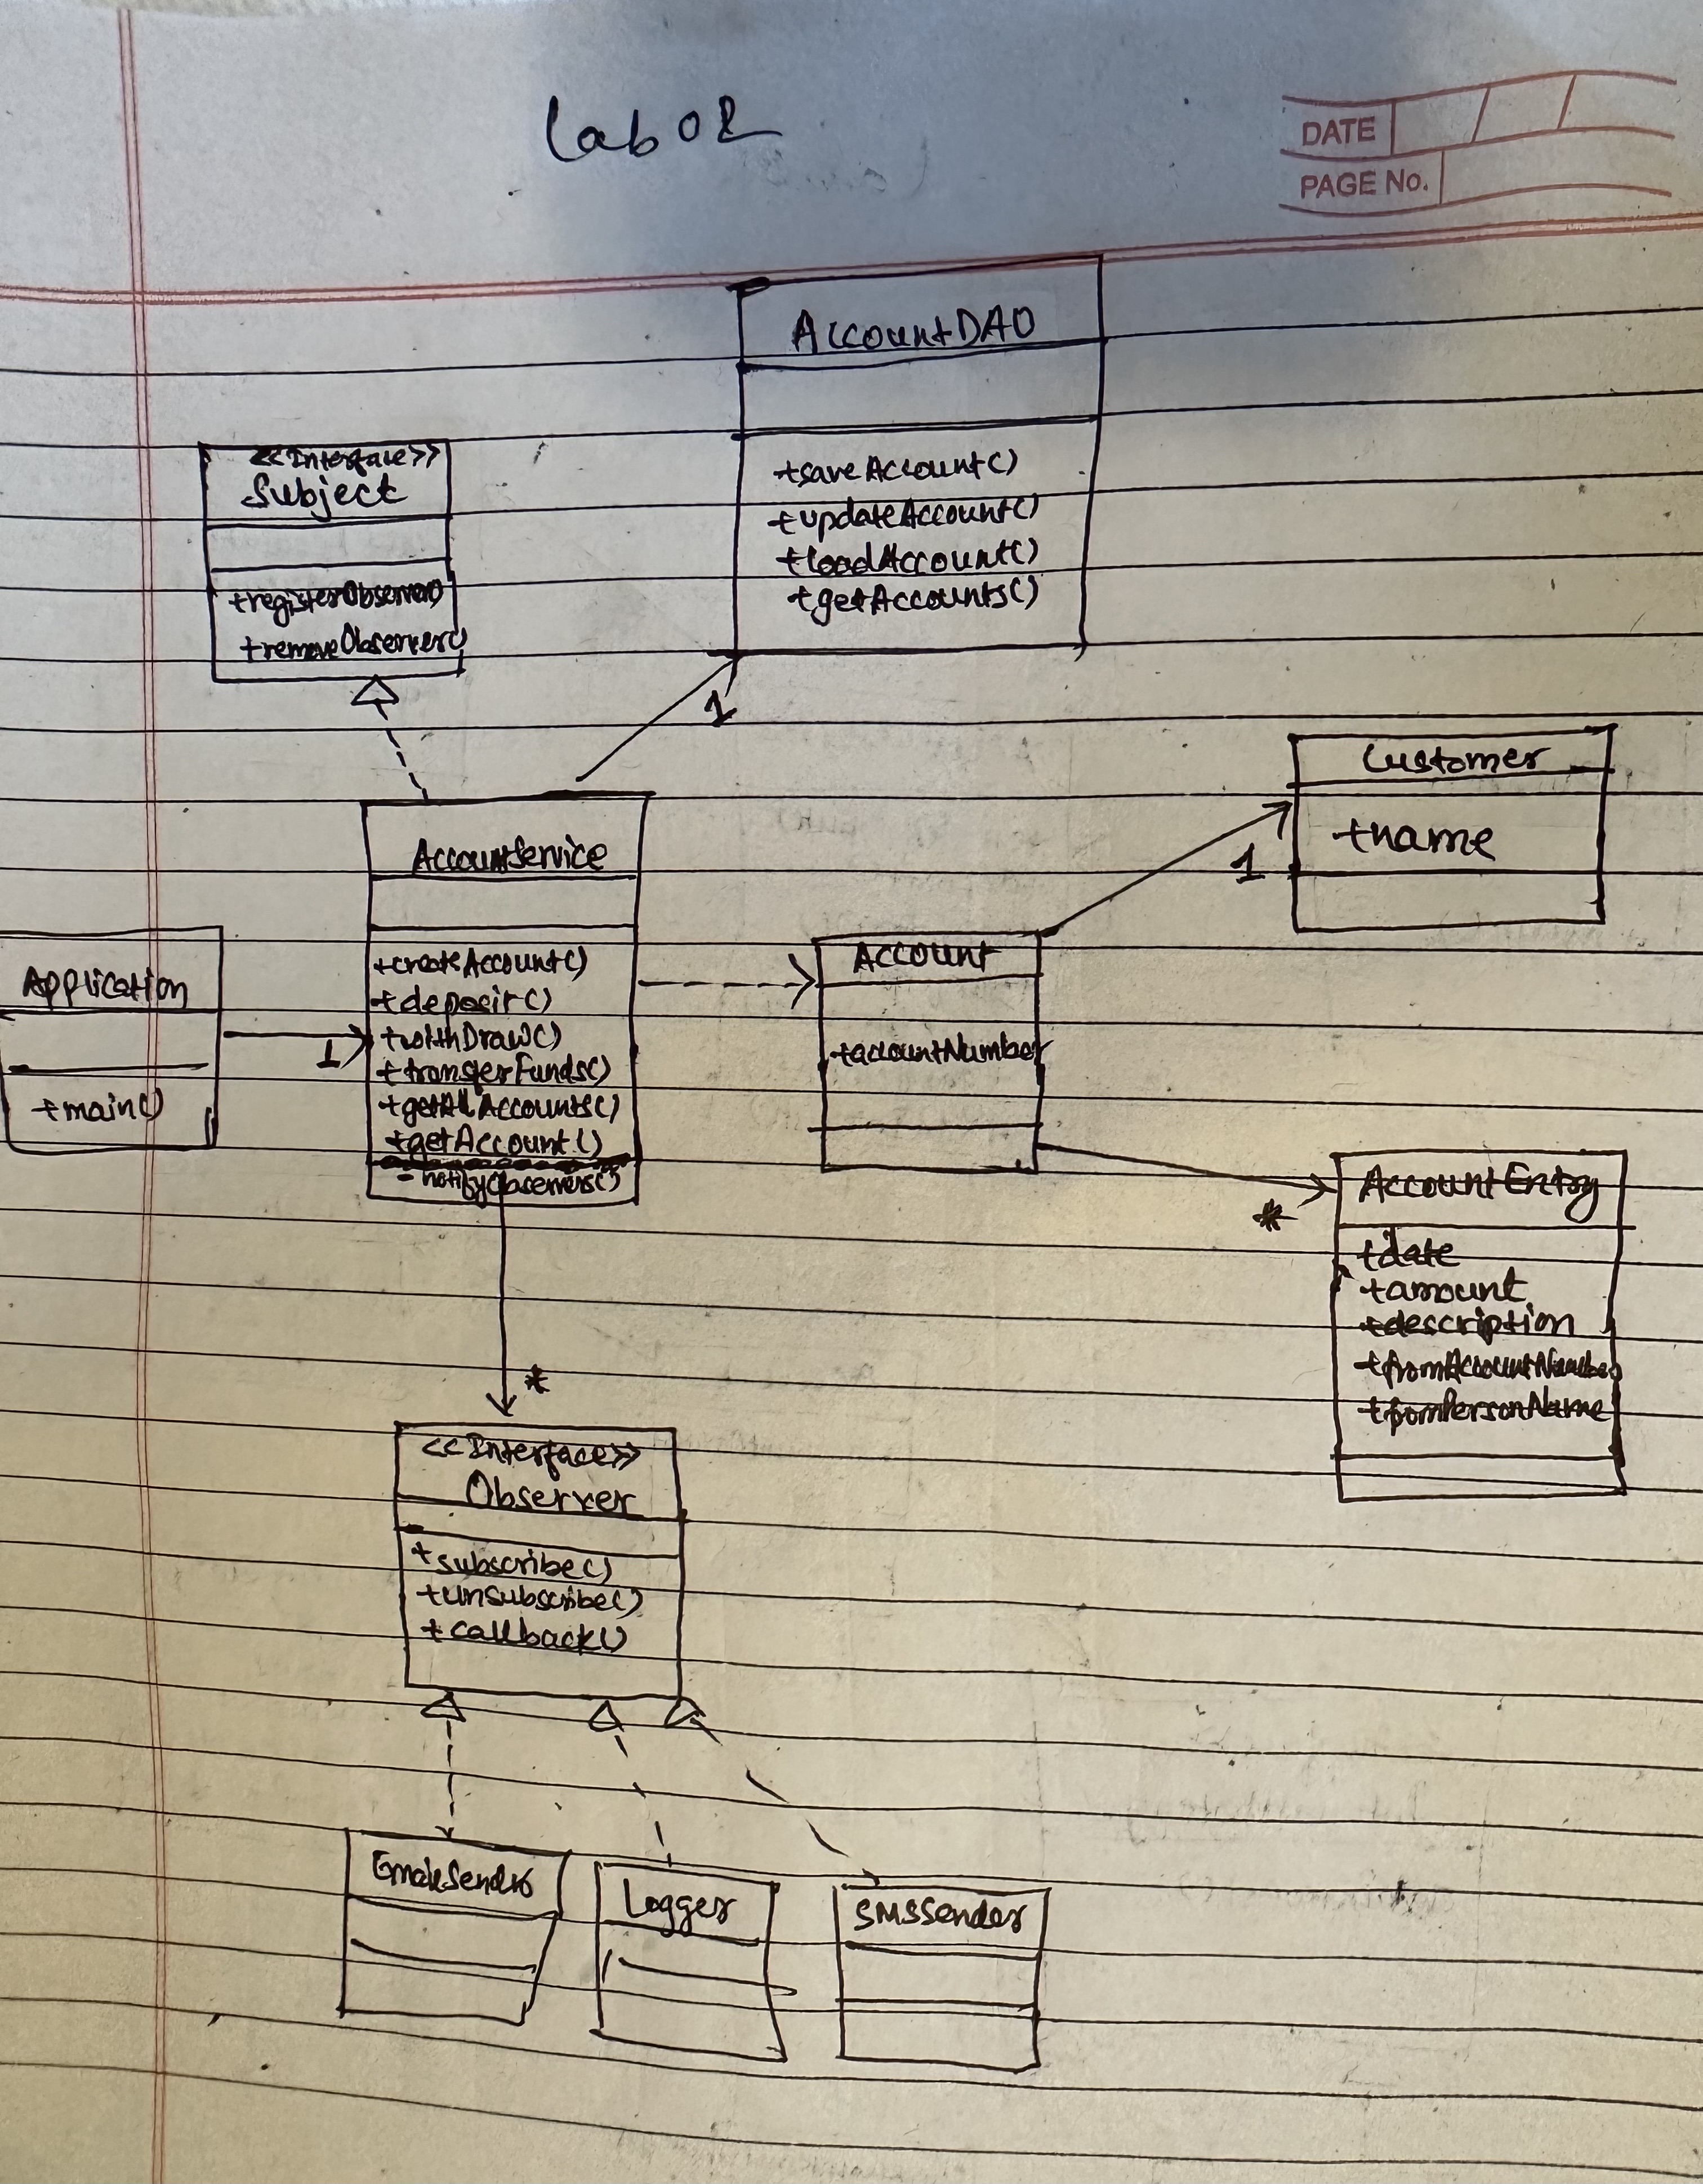 Lab 02
DATE
PAGE No.
AccountDAO
+saveAccount()
+updateAccount()
+loadAccount()
+getAccounts()
<<Interface>>
Subject
+registerObserver()
+removeObserver()
1
Customer
+name
1
AccountService
+createAccount()
+deposit()
+withDraw()
+transferFunds()
+getAllAccounts()
+getAccount()
-notifyObservers()
Application
+main()
1
Account
+accountNumber
*
AccountEntry
+date
+amount
+description
+fromAccountNumber
+fromPersonName
*
<<Interface>>
Observer
+subscribe()
+unsubscribe()
+callback()
EmailSender
Logger
SMSSender